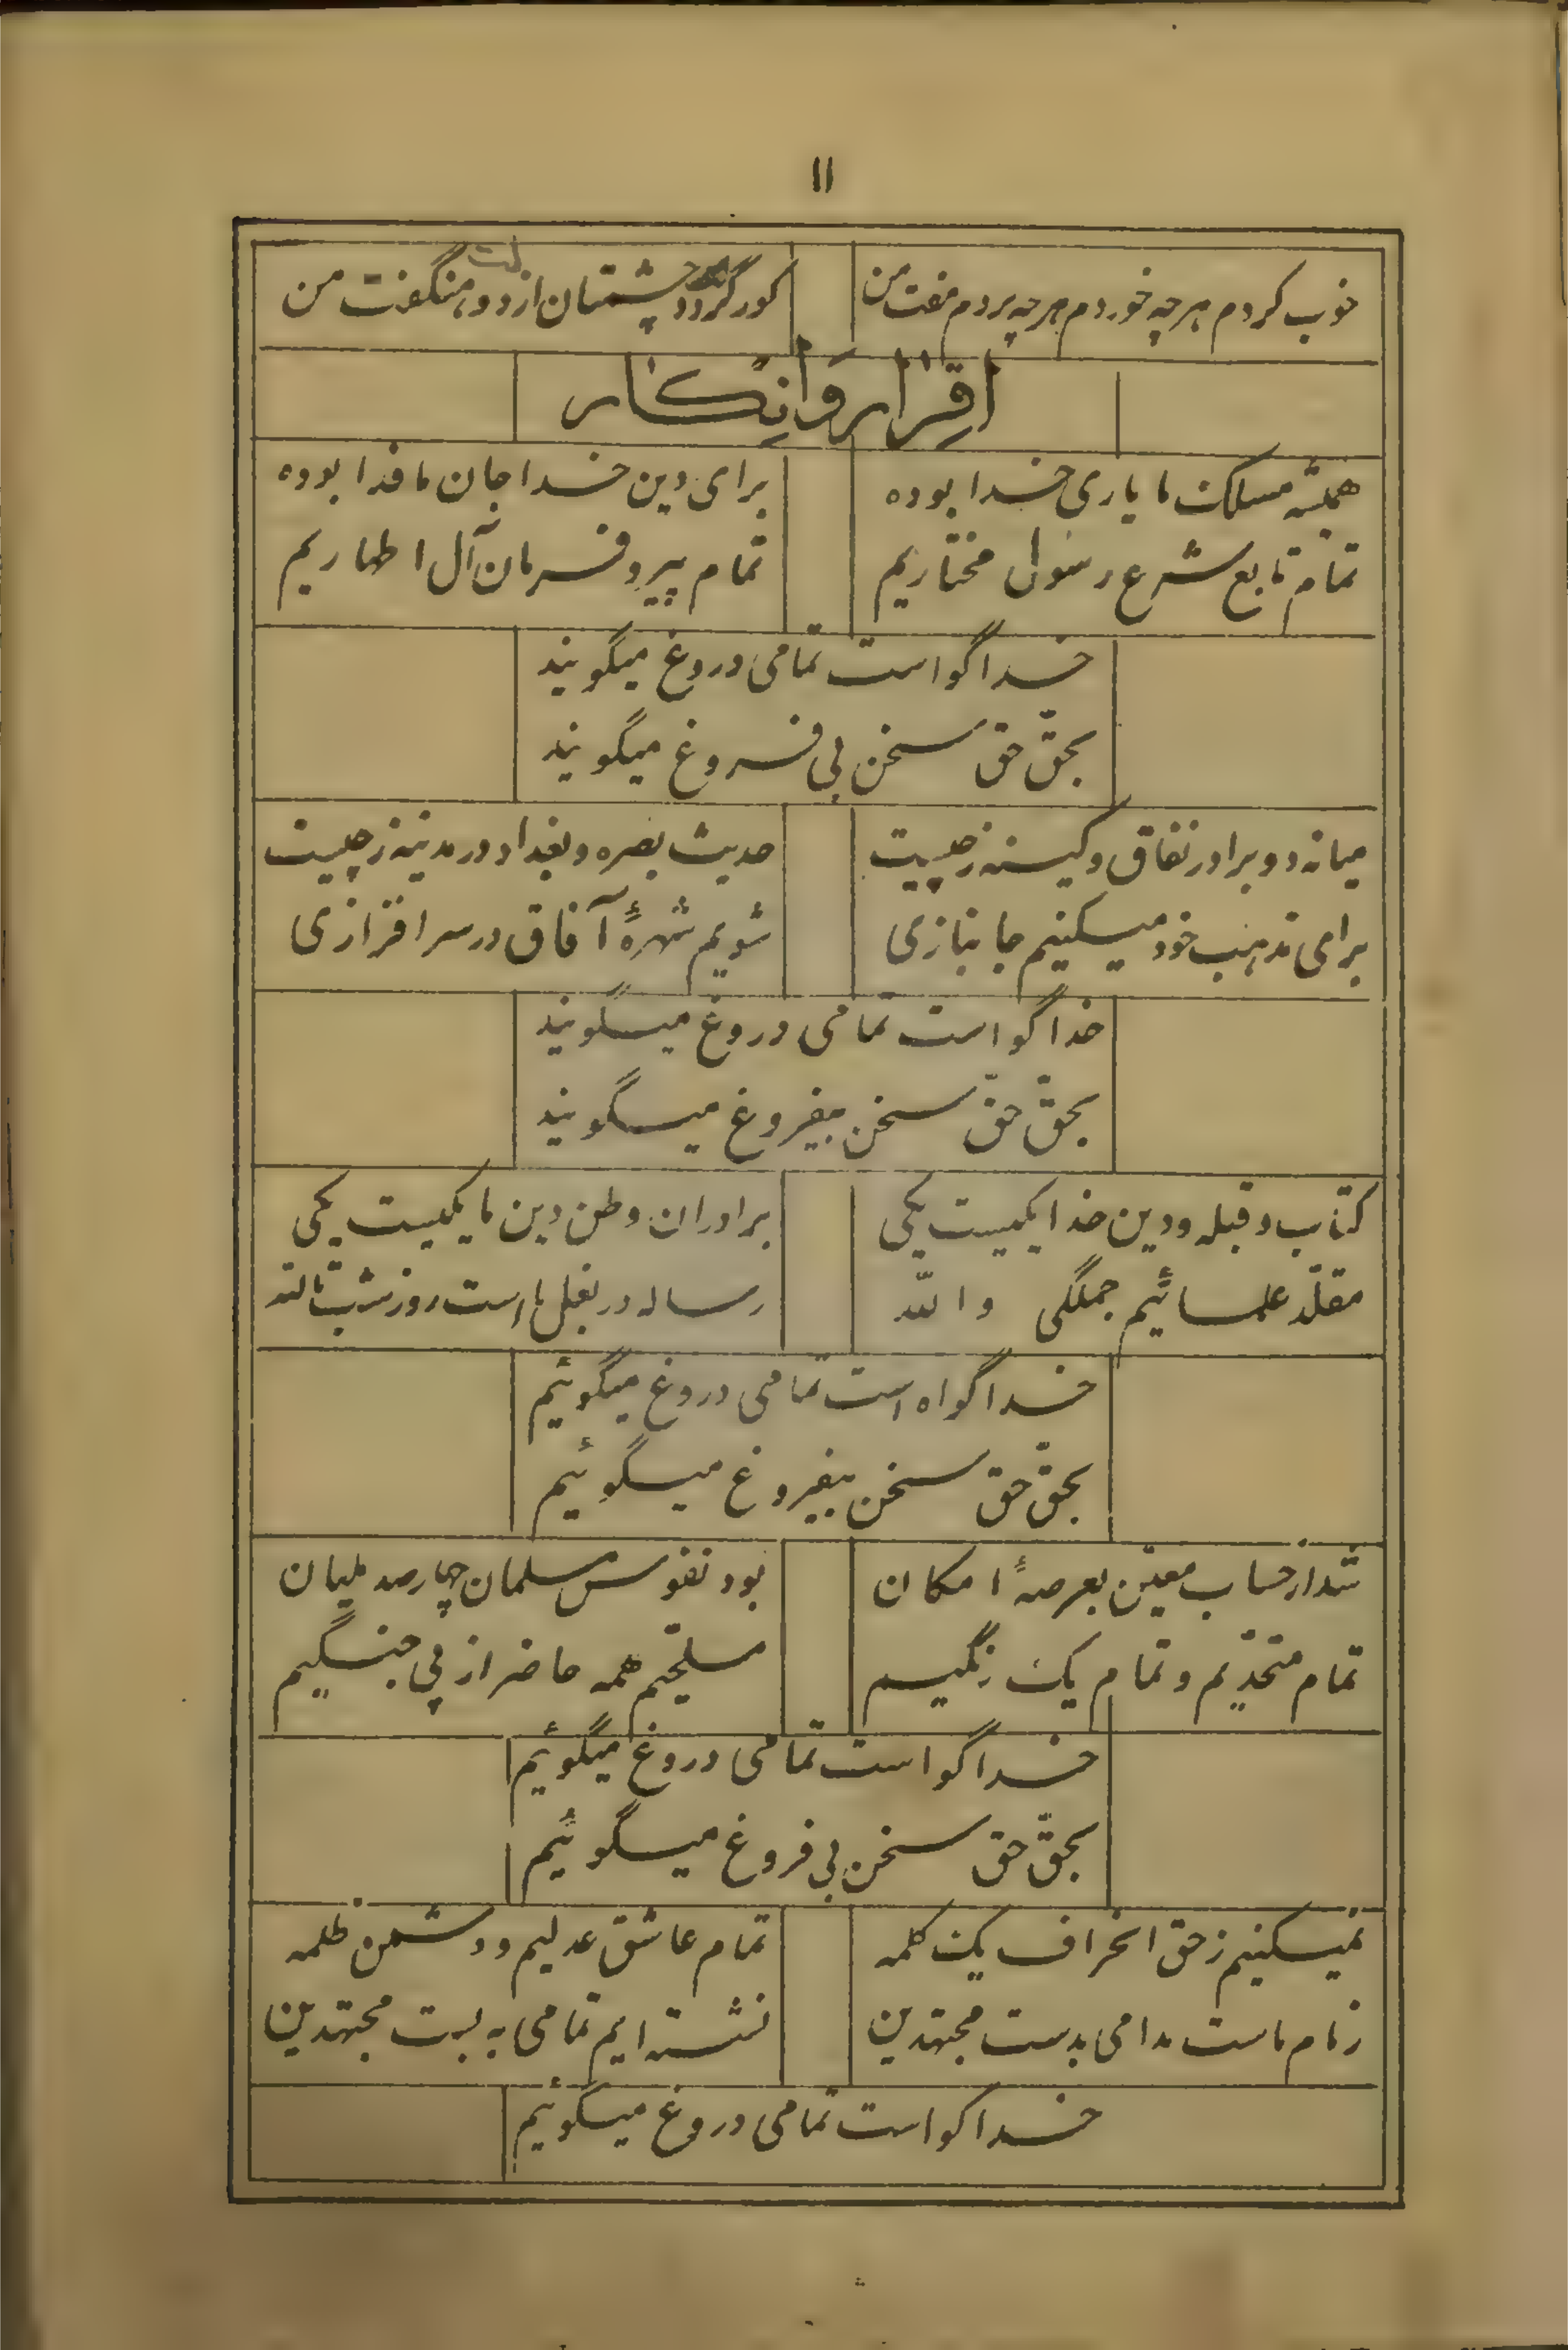 ۱۱
خوب کردم هرچه خوردم هرچه بردم مفت من
کور گردد چشمتان از دو منگفت من
اقرار و انکار
همیشه مسلک ما یاری خدا بوده
برای دین خدا جان ما فدا بوده
تمام تابع شرع رسول مختاریم
تمام پیرو فرمان آل اطهاریم
خدا گواست تمامی دروغ میگویند
بحقّ حق سخن بی فروغ میگویند
میانه دو برادر نفاق و کینه ز چیست
حدیث بصره و بغداد در مدینه ز چیست
برای مذهب خود میکنیم جانبازی
شویم شهرۀ آفاق در سرافرازی
خدا گواست تمامی دروغ میگویند
بحقّ حقّ سخن بیفروغ میگویند
کتاب و قبله و دین خدا یکیست یکی
برادران وطن دین ما یکیست یکی
مقلّد علمائیم جملگی والله
رساله در بغل ما است روز شب تالله
خدا گواه است تمامی دروغ میگوئیم
بحقّ حق سخن بیفروغ میگوئیم
شد از حساب معیّن بعرصۀ امکان
بود نفوس مسلمان چهارصد ملیان
تمام متحدّیم و تمام یک رنگیم
مسلحّیم همه حاضر از پی جنگیم
خدا گواست تمامی دروغ میگوئیم
بحقّ حق سخن بی فروغ میگوئیم
نمیکنیم ز حق انحراف یک کلمه
تمام عاشق عدلیم و دشمن ظلمه
زمام ماست مدامی بدست مجتهدین
نشسته ایم تمامی به بست مجتهدین
خدا گواست تمامی دروغ میگوئیم